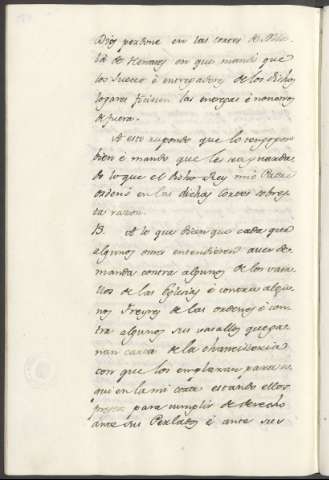 Dios perdone en las cortes de Alca
lá de Henares en que mandó que
los Jueces é entregadores de los dichos
logares ficiesen las entregas é non otros
de fuera.
A esto respondo que lo tengo por
bien é mando que les sea guarda
do lo que el dicho Rey mio Padre
ordenó en las dichas Cortes sobres
ta razon.
13. A lo que dicen que cada que
algunos omes entendieren aver de
manda contra algunos de los vasa
llos de las Eglesias é contra algu
nos Freyres de las ordenes é con
tra algunos sus vasallos que ga
nan carta de la chancilleria
con que los emplazan para a
qui en la mi corte estando ellos
prestos para cumplir de derecho
ante sus Perlados é ante sus